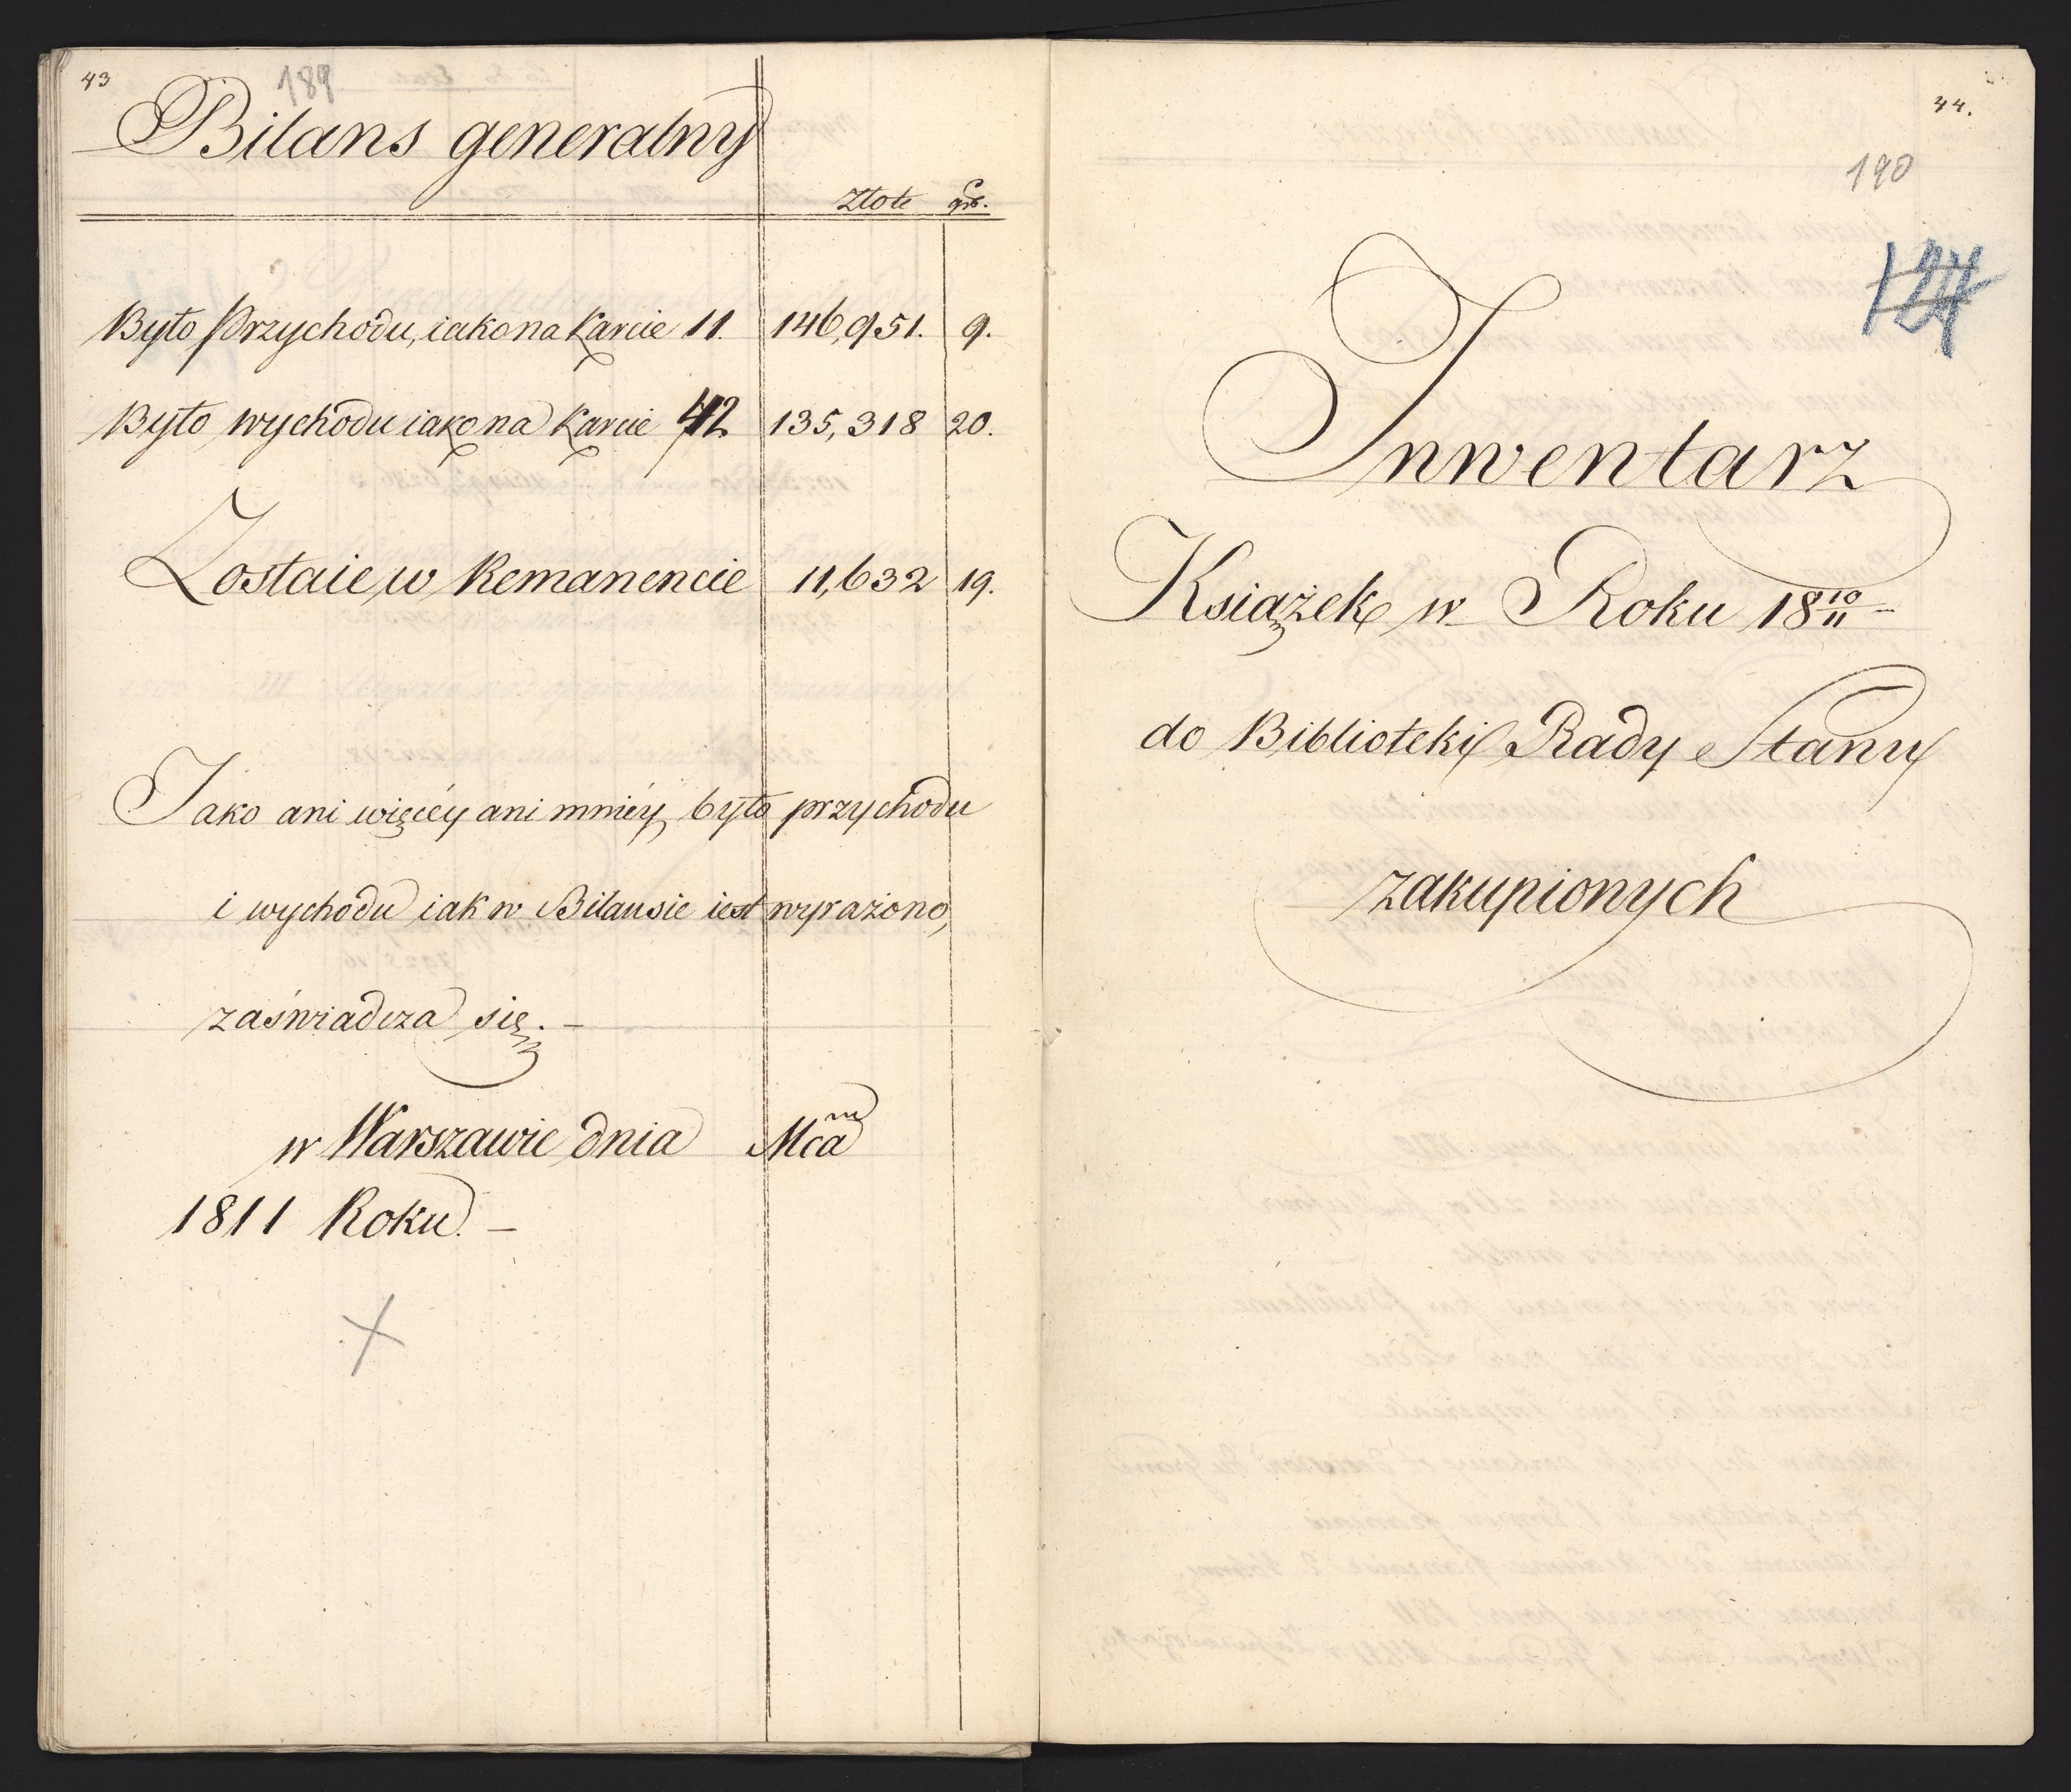 43
189
Bilans generalny
Złote gr.
Było Przychodu, iako na Karcie 11. 146,951. 9.
Było wychodu iako na Karcie 42 135,318 20.
Zostaie w Remanencie 11,632 19.
Jako ani więcéy ani mniéy było przychodu
i wychodu iak w Bilansie iest wyrażono,
zaświadcza się. –
w Warszawie dnia Mca
1811 Roku. –
44.
190
124
Inwentarz
Książek w Roku 18 10/11 –
do Biblioteki Rady Stanu
zakupionych